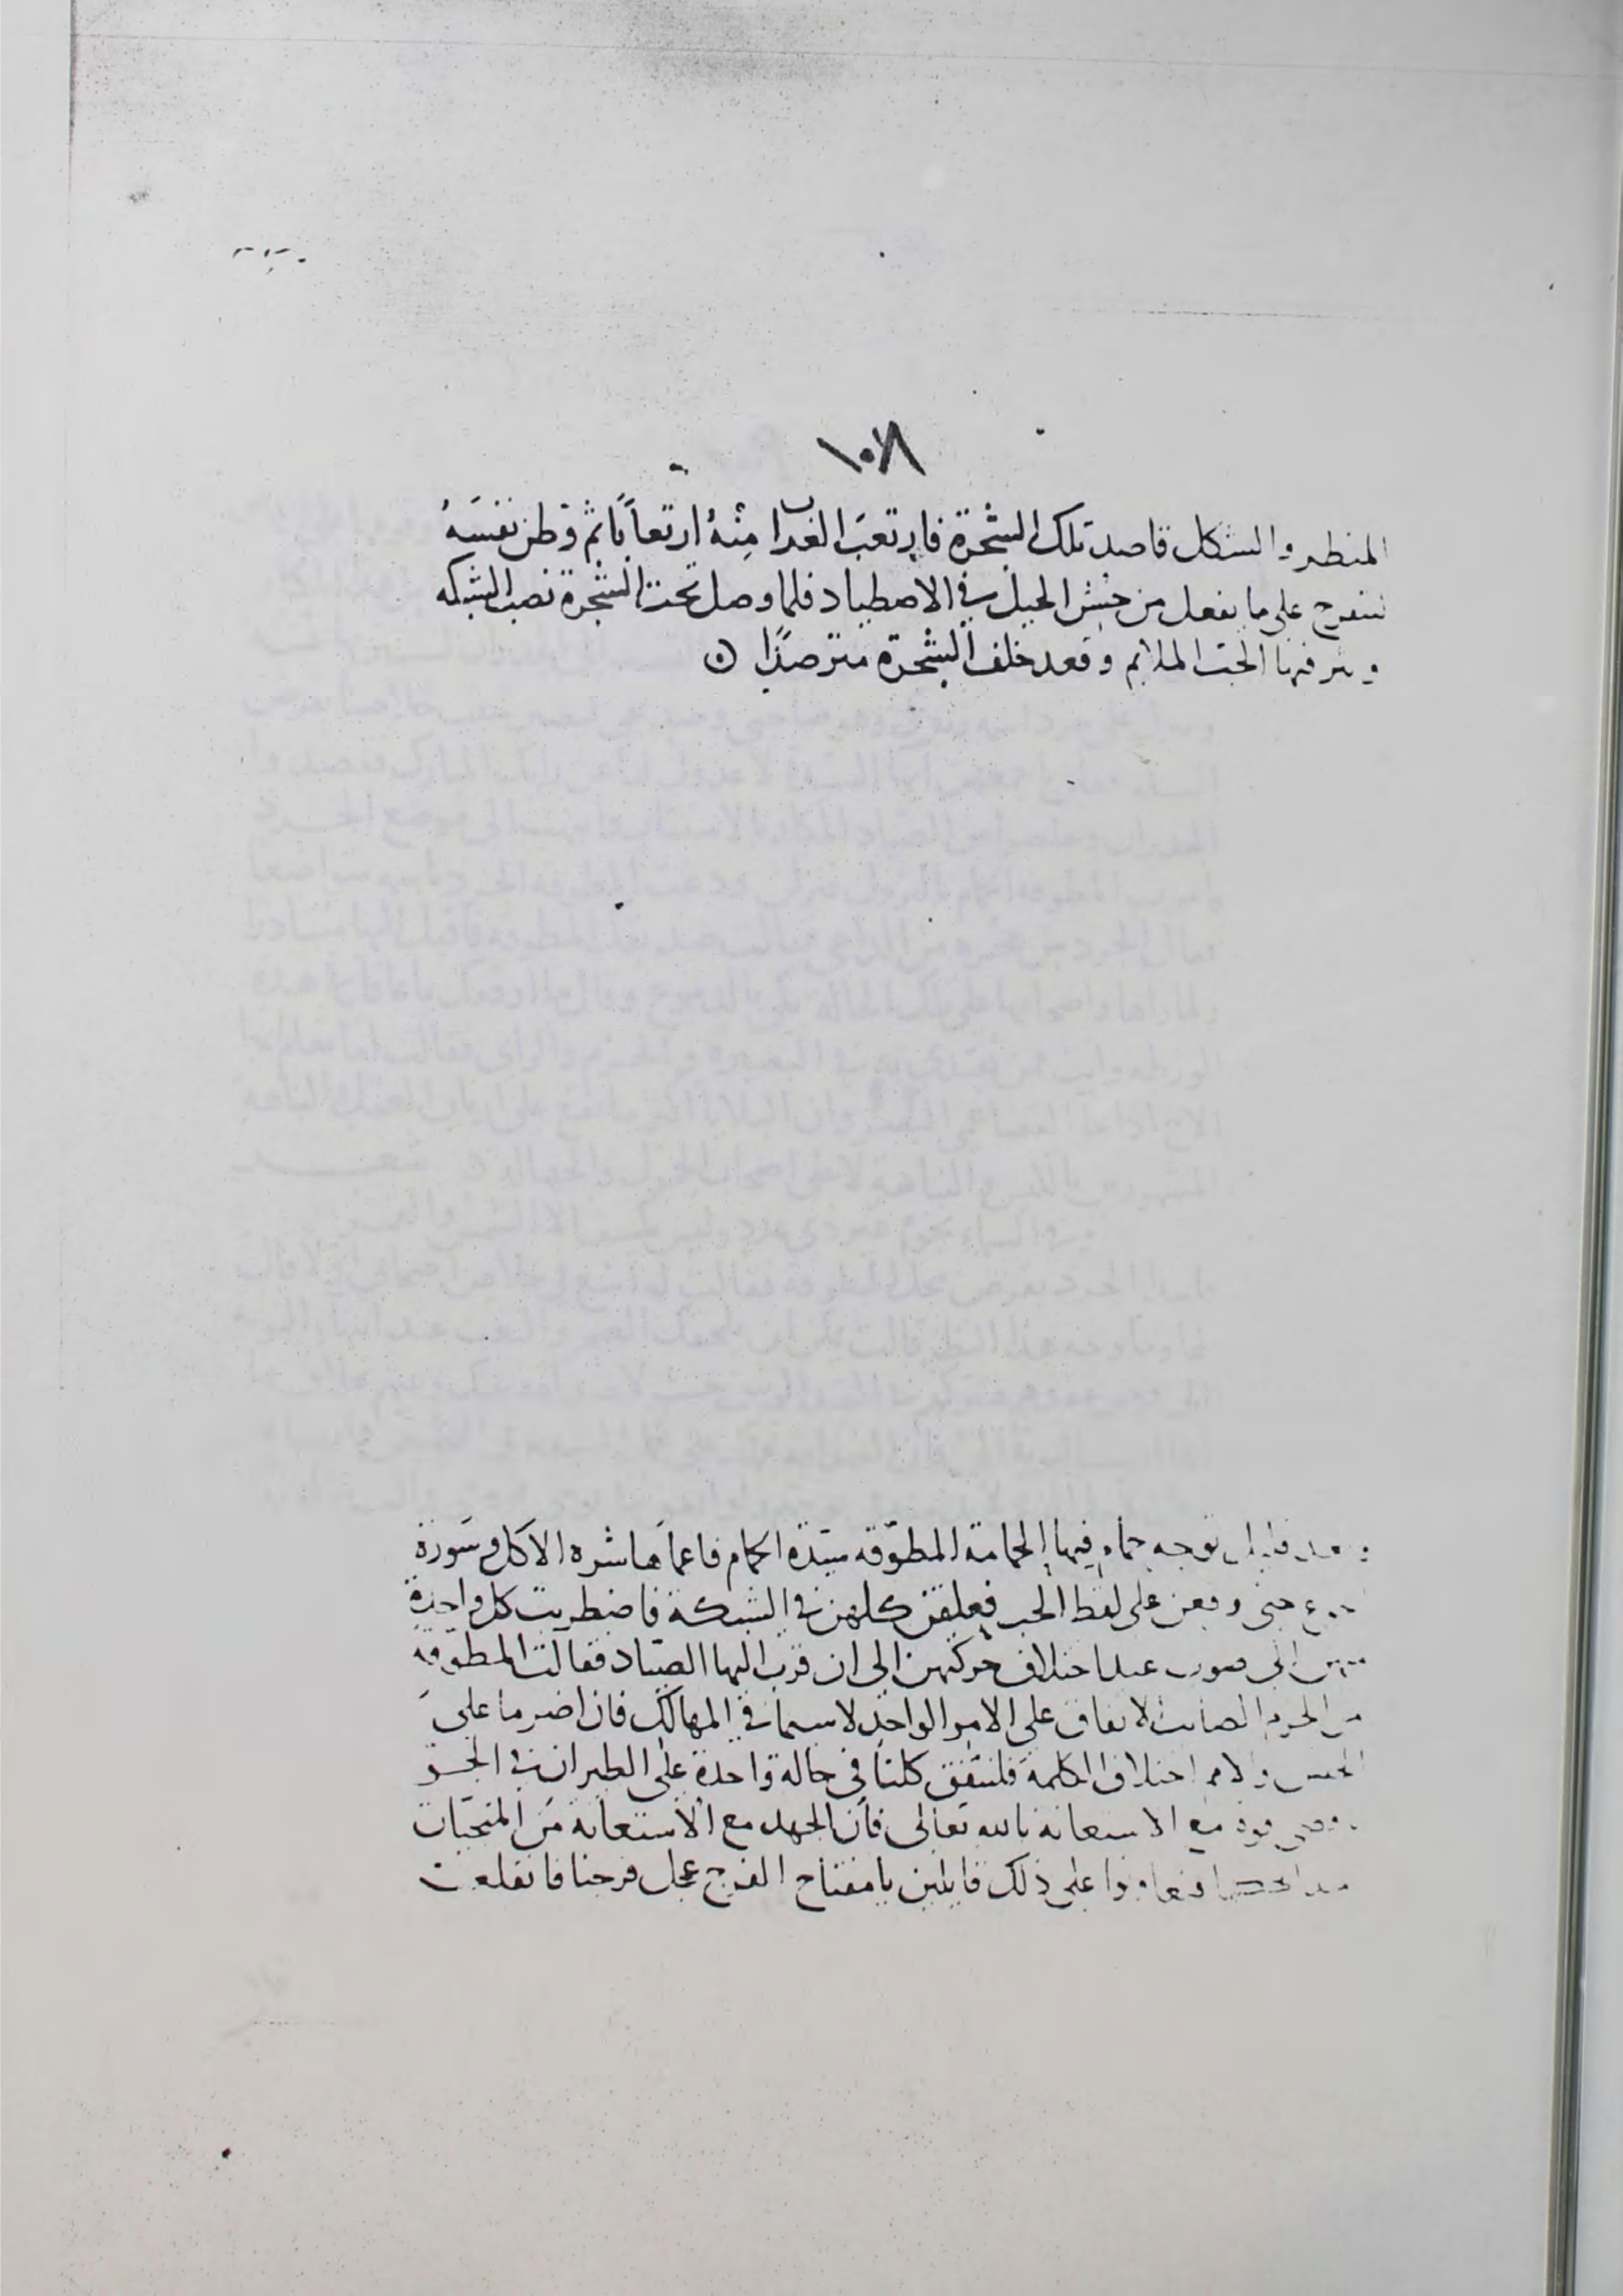 ١٠٨
المنظر والشكل قاصد تلك الشجرة فارتعب الغراب مِنْهُ ارتعاباً ثم وطن نفسَهُ
ليتفرج على ما يفعل من جنس الحيل في الاصطياد فلما وصل تحت الشجرة نصب الشبكه
ونثر فيها الحب الملايم وقعد خلف الشجرة مترصدًا
وبعد قليل توجه حمام فيها الحمامة المطوّقه سيّدة الحمام فاعماها شره الاكل وسَورة
الجوع حتى وقعن على لقط الحب فعلقن كلهن في الشبكة فاضطربت كل واحدةٍ
منهن الى صوب عند اختلاف حركتهن الى ان قرب اليها الصيّاد فقالت المطوّقة
من الحزم الاتفاق على الامر الواحد لا سيما في المهالك فان اضر ما على
اختلاف الكلمة فلنتفق كلنا في حالة واحدة على الطيران في الجَوّ
مع الاستعانه بالله تعالى فان الجهد مع الاستعانة من المنجيات
على ذلك قايلين يا مفتاح الفرج عجل فرجنا فانقلعت